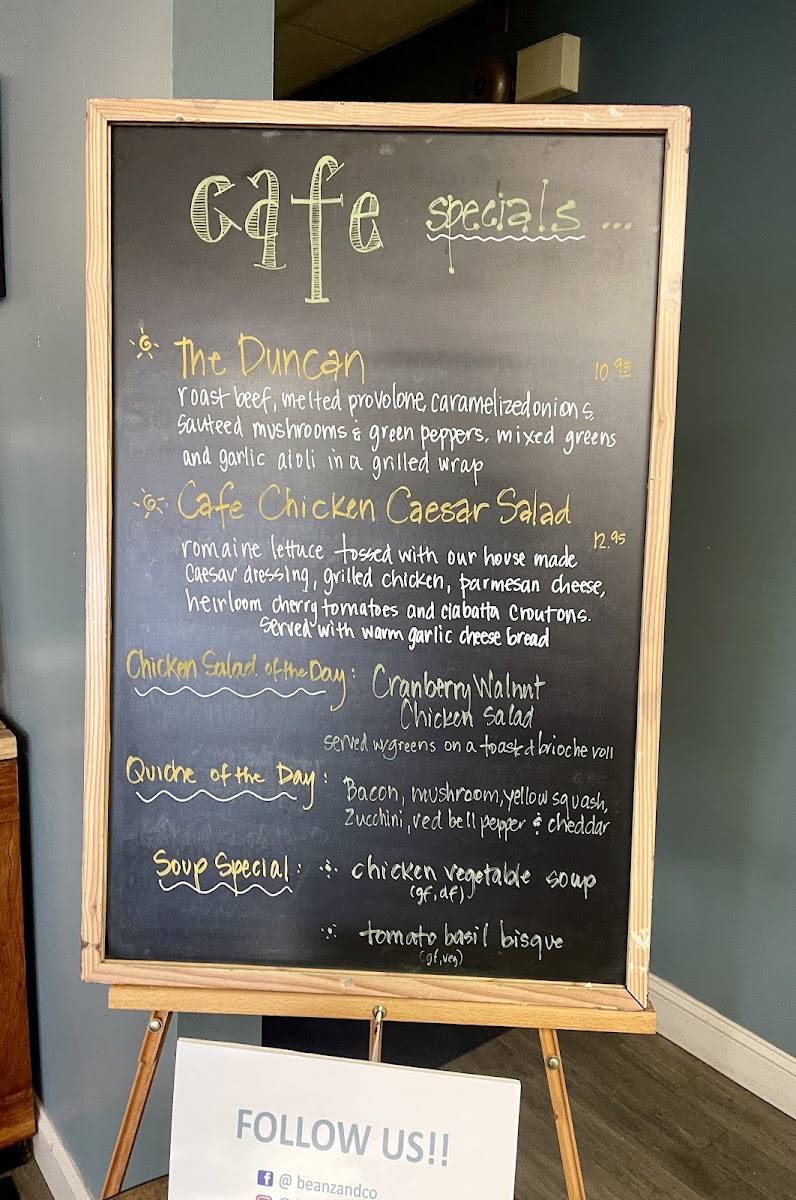 cafe specials ...
The Duncan 10.95
roast beef, melted provolone, caramelized onions,
sauteed mushrooms & green peppers, mixed greens
and garlic aioli in a grilled wrap
Cafe Chicken Caesar Salad 12.95
romaine lettuce tossed with our house made
caesar dressing, grilled chicken, parmesan cheese,
heirloom cherry tomatoes and ciabatta croutons.
served with warm garlic cheese bread
Chicken Salad of the Day: Cranberry Walnut
Chicken Salad
served w/greens on a toasted brioche roll
Quiche of the Day: Bacon, mushroom, yellow squash,
zucchini, red bell pepper & cheddar
Soup Special: chicken vegetable soup
(gf, df)
tomato basil bisque
(gf, veg)
FOLLOW US!!
@ beanzandco